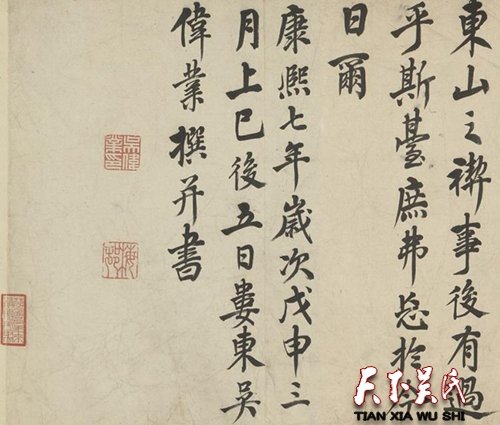 東山之禊事後有過
乎斯臺庶弗忘於
日爾
康熙七年歲次戊申三
月上巳後五日婁東吳
偉業撰并書
吳偉業印
梅邨
天下吴氏
TIAN XIA WU SHI